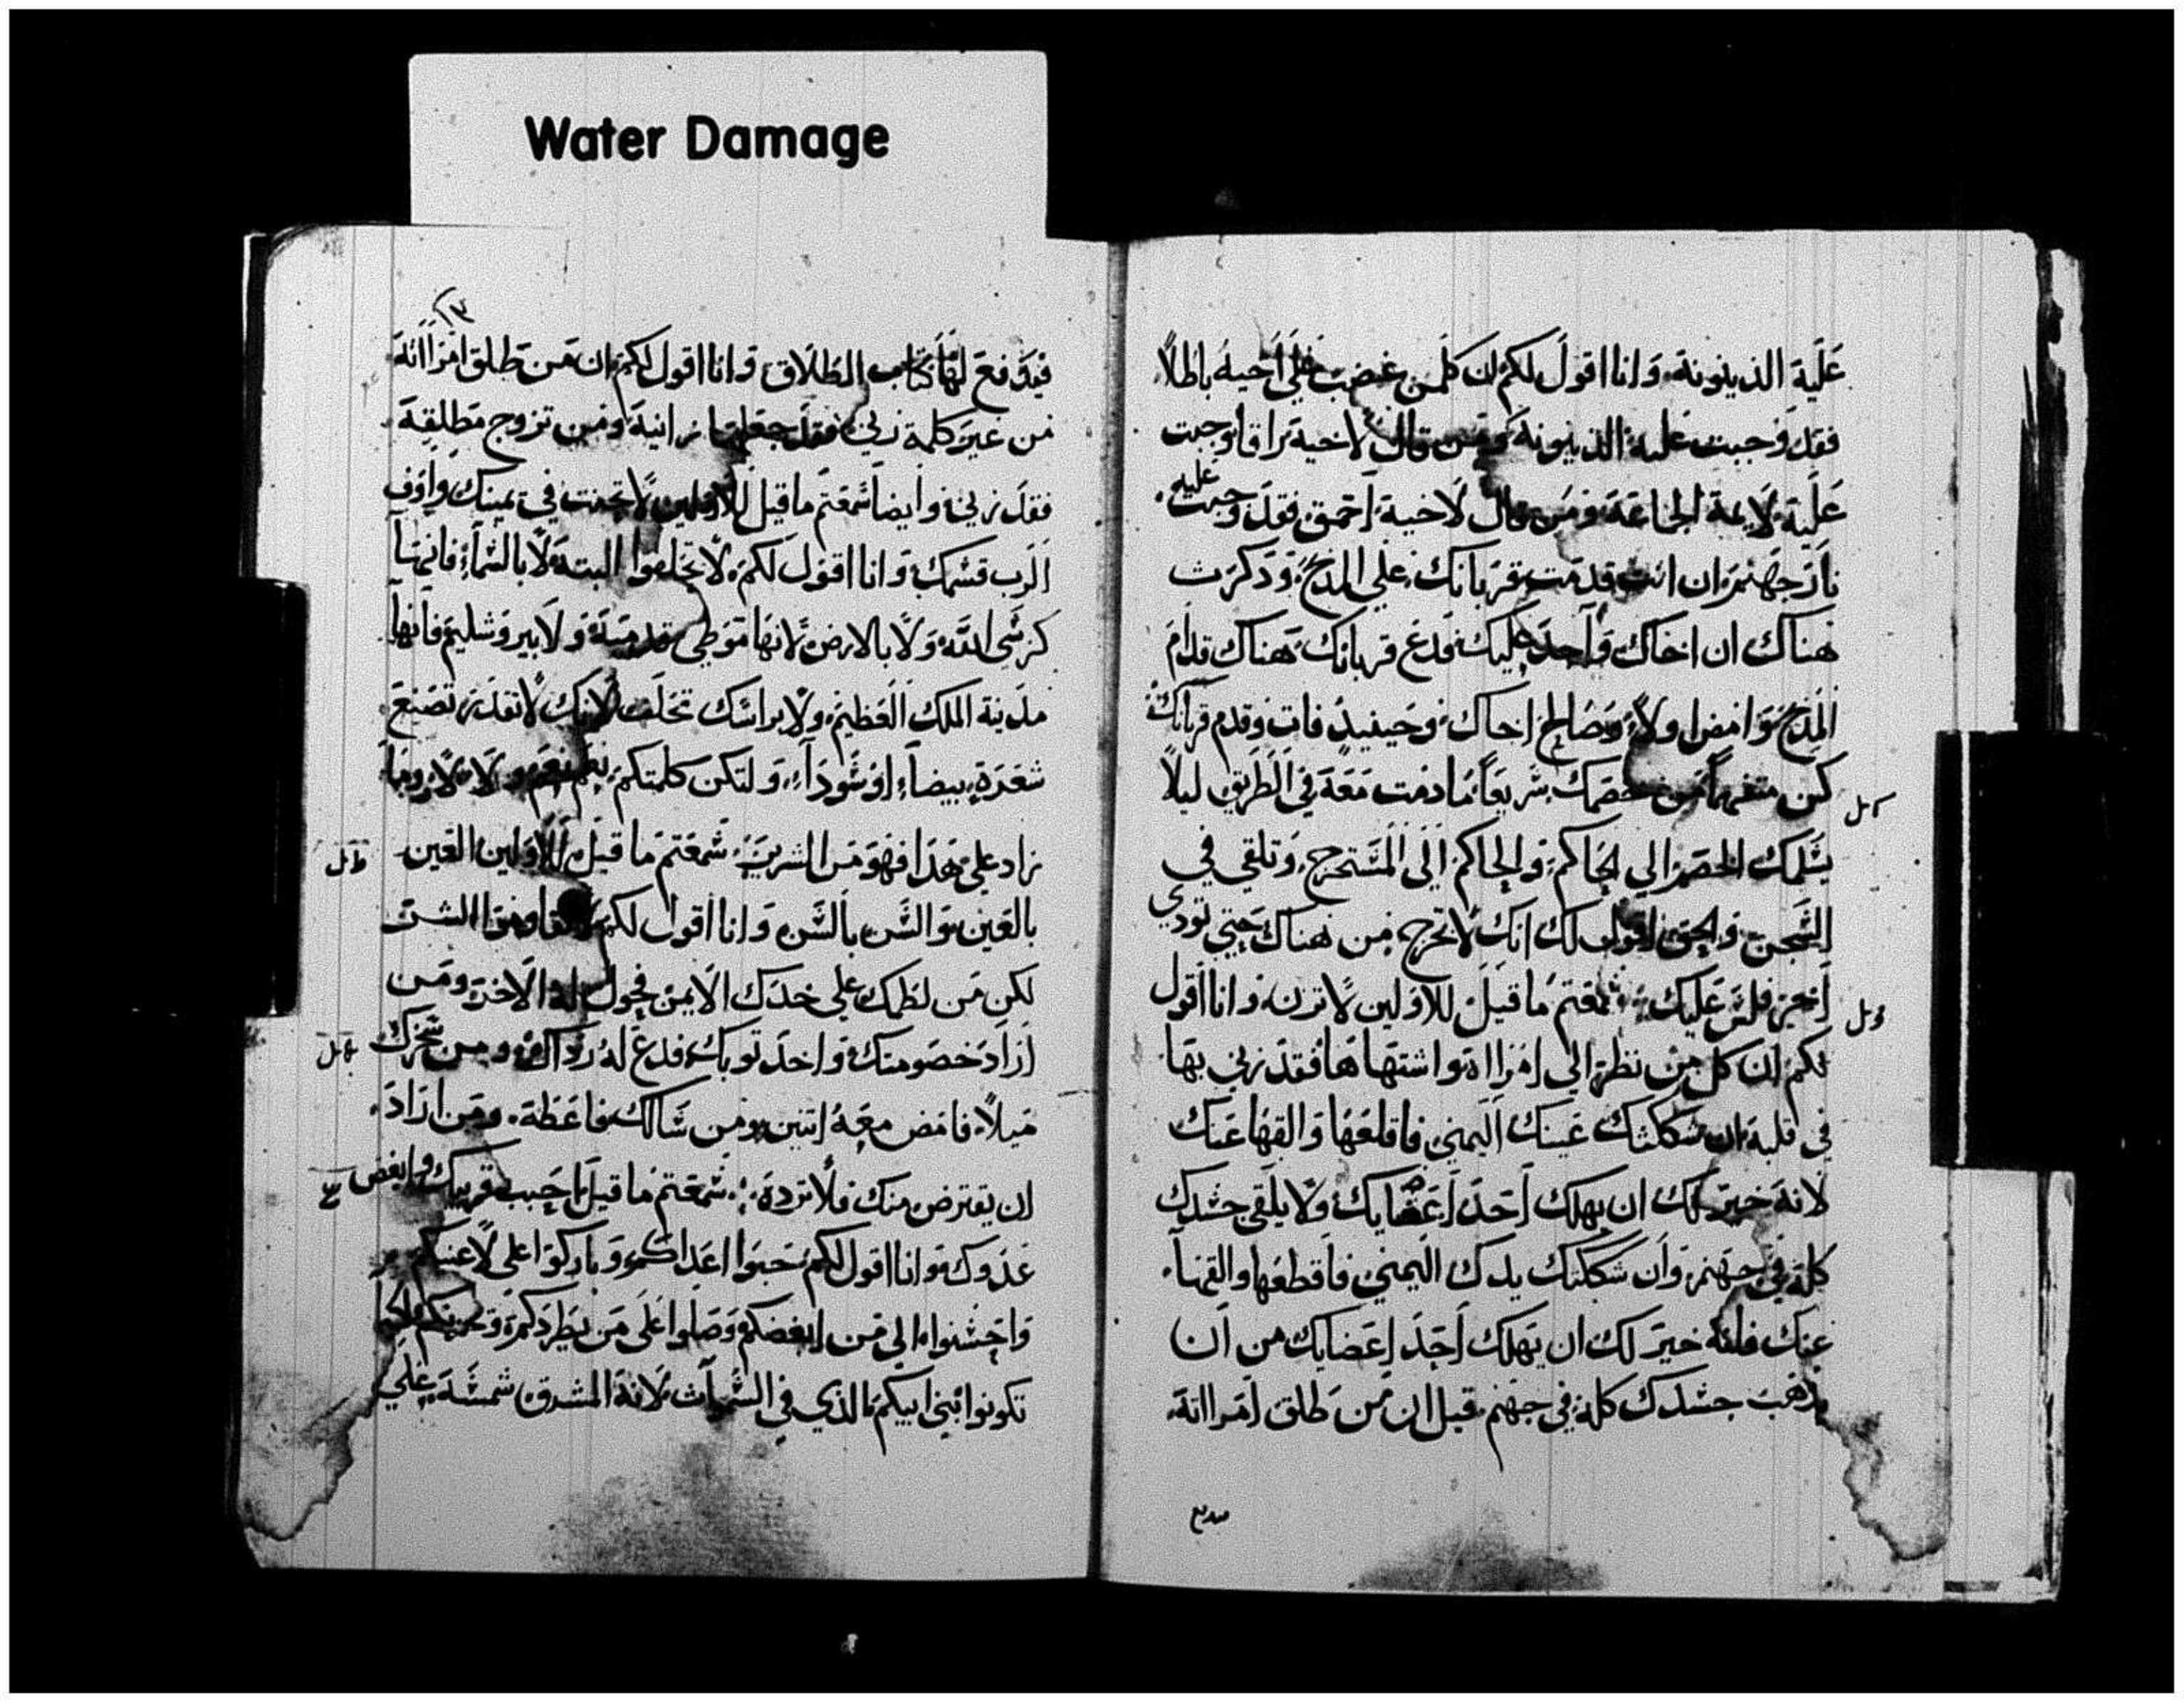 Water Damage
عليه الدينونة وانا اقول لكم ان كلمن غضب علي اخيه باطلاً
فقد وجبت عليه الدينونة ومن قال لاخيه راقا وجبت
عليه لايمة الجماعة ومن قال لاخيه احمق فقد وجبت عليه
نار جهنم ان انت قدمت قربانك علي المذبح وذكرت
هناك ان اخاك واجد عليك فدع قربانك هناك قدام
المذبح وامض اولاً وصالح اخاك وحينيد فات وقدم قربانك
كن متفهماً من خصمك سريعاً ما دمت معه في الطريق ليلاً
يسلمك الخصم الي الحاكم والحاكم الي المستخرج وتلقي في
السجن والحق اقول لك انك لا تخرج من هناك حتي تودي
اخر فلس عليك سمعتم ما قيل للاولين لا تزن وانا اقول
لكم ان كل من نظر الي امراة واشتهاها فقد زني بها
في قلبه ان شككتك عينك اليمني فاقلعها والقها عنك
لانه خير لك ان يهلك احد اعضايك ولا يلقي جسدك
كله في جهنم وان شككتك يدك اليمني فاقطعها والقها
عنك فانه خير لك ان يهلك احد اعضايك من ان
يذهب جسدك كله في جهنم قيل ان من طلق امراته
١٣
فيدفع لها كتاب الطلاق وانا اقول لكم ان من طلق امراته
من غير كلمة زني فقد جعلها زانية ومن تزوج مطلقة
فقد زني وايضا سمعتم ما قيل للاولين لا تحنث في يمينك واوف
الرب قسمك وانا اقول لكم لا تحلفوا البتة لا بالسماء فانها
كرسي الله ولا بالارض لانها موطي قدميه ولا بيروشليم فانها
مدينة الملك العظيم ولا براسك تحلف لانك لا تقدر تصنع
شعرة بيضاء او سوداء ولتكن كلمتكم نعم نعم ولا لا وما
زاد علي هذا فهو من الشرير سمعتم ما قيل للاولين العين
بالعين والسن بالسن وانا اقول لكم لا تقاوموا الشر
لكن من لطمك علي خدك الايمن فحول له الاخر ومن
اراد خصومتك واخذ توبك فدع له رداك ومن سخرك
ميلاً فامض معه اتنين ومن سالك فاعطه ومن اراد
ان يقترض منك فلا ترده سمعتم ما قيل احبب قريبك وابغض
عدوك وانا اقول لكم حبوا اعداكم وباركوا علي لاعنيكم
واحسنوا الي من ابغضكم وصلوا علي من يطردكم
تكونوا بني ابيكم الذي في السموات لانه المشرق شمسه علي